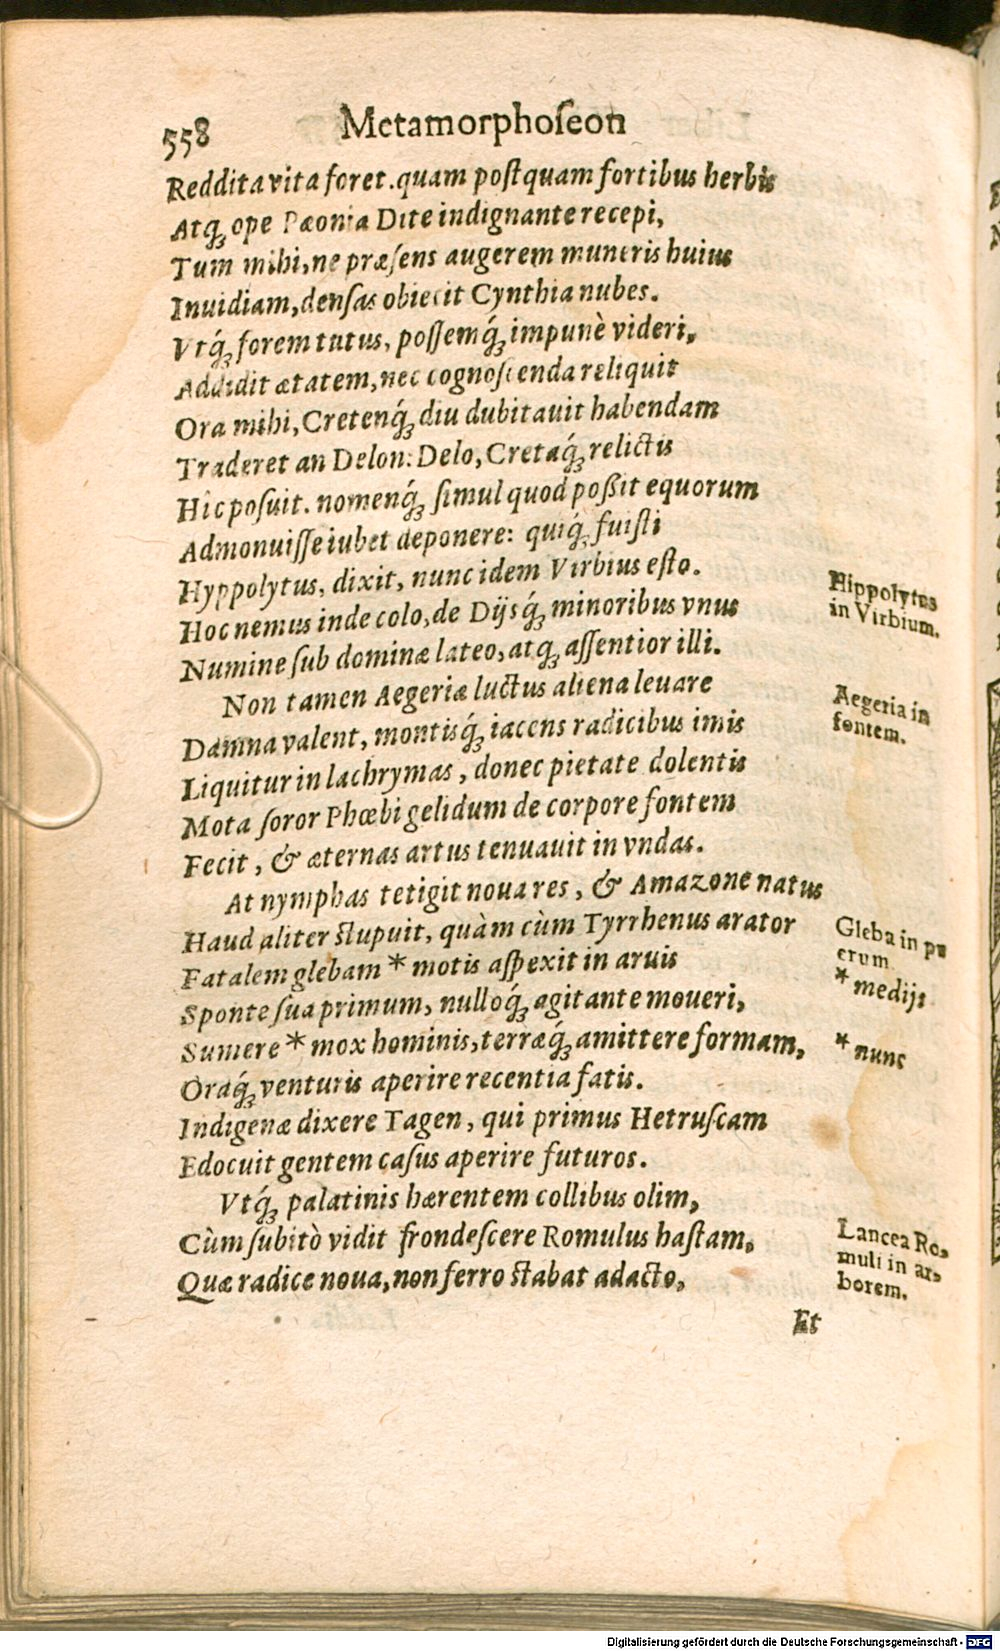 558 Metamorphoſeon
Reddita vita foret. quam poſtquam fortibus herbis
Atq́ꝫ ope Pæonia Dite indignante recepi,
Tum mihi, ne præſens augerem muneris huius
Inuidiam, denſas obiecit Cynthia nubes.
Vtq́ꝫ forem tutus, poſſemq́ꝫ impunè videri,
Addidit ætatem, nec cognoſcenda reliquit
Ora mihi, Cretenq́ꝫ diu dubitauit habendam
Traderet an Delon: Delo, Cretaq́ꝫ relictis
Hic poſuit. nomenq́ꝫ ſimul quod poßit equorum
Admonuiſſe iubet deponere: quiq́ꝫ fuiſti
Hyppolytus, dixit, nunc idem Virbius eſto.
Hippolytus
Hoc nemus inde colo, de Dijsq́ꝫ minoribus vnus
in Virbium.
Numine ſub dominæ lateo, atqꝫ aſſentior illi.
Non tamen Aegeriæ luctus aliena leuare
Aegeria in
Damna valent, montisq́ꝫ iacens radicibus imis
fontem.
Liquitur in lachrymas, donec pietate dolentis
Mota ſoror Phœbi gelidum de corpore fontem
Fecit, & æternas artus tenuauit in vndas.
At nymphas tetigit noua res, & Amazone natus
Haud aliter ſtupuit, quàm cùm Tyrrhenus arator
Gleba in pu
Fatalem glebam * motis aſpexit in aruis
erum
* medijs
Sponte ſua primum, nulloq́ꝫ agitante moueri,
Sumere * mox hominis, terræq́ꝫ amittere formam,
* nunc
Oraq́ꝫ venturis aperire recentia fatis.
Indigenæ dixere Tagen, qui primus Hetruſcam
Edocuit gentem caſus aperire futuros.
Vtq́ꝫ palatinis hærentem collibus olim,
Cùm ſubitò vidit frondeſcere Romulus haſtam,
Lancea Ro-
muli in ar-
Quæ radice noua, non ferro ſtabat adacto,
borem.
Et
Digitalisierung gefördert durch die Deutsche Forschungsgemeinschaft - DFG